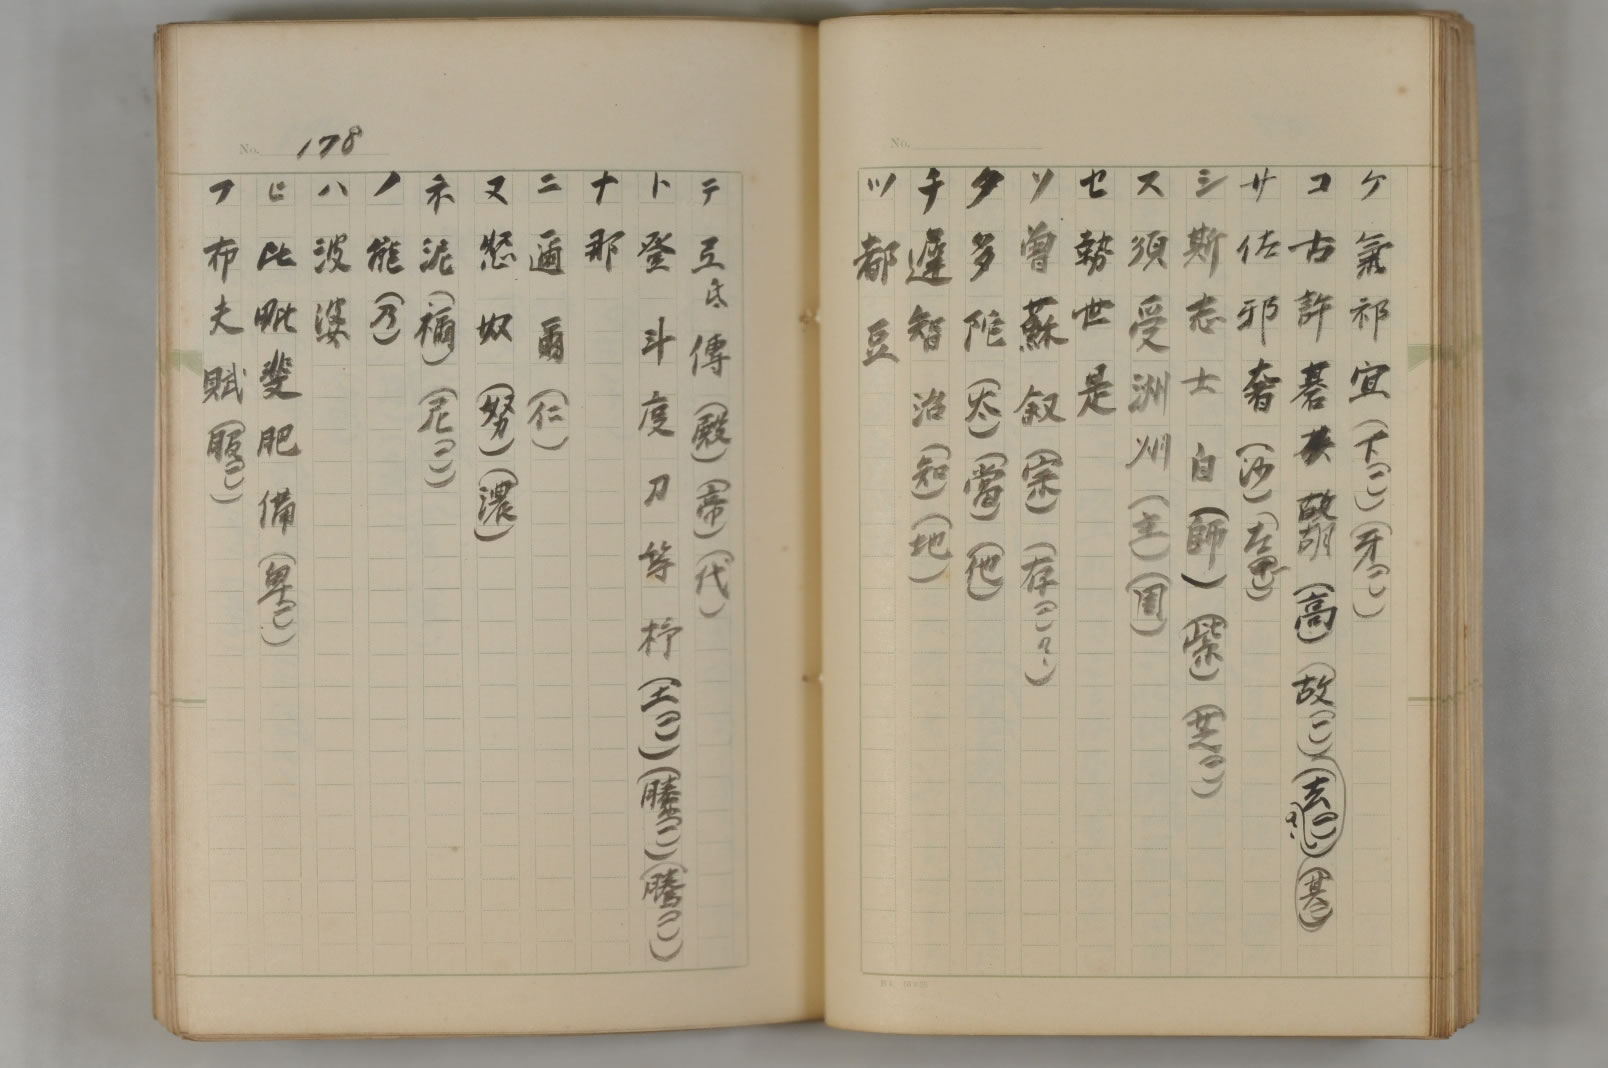 No.
ケ 氣 祁 宜 (下(一)) (牙(一))
コ 古 許 碁 故 胡 (高) (故(一)) (去(一)?) (基(一))
サ 佐 邪 奢 (沙) (左(一))
シ 斯 志 士 自 (師) (紫(一)) (芝(一))
ス 須 受 洲 州 (主) (周)
セ 勢 世 是
ソ 曽 蘇 叙 (宗) (存(一)?)
タ 多 陀 (太) (當) (他)
チ 遲 智 治 (知) (地)
ツ 都 豆
No. 178
テ 弖 底 傳 (殿) (帝) (代)
ト 登 斗 度 刀 等 杼 (土(一)) (縢(一)) (騰(一))
ナ 那
ニ 邇 爾 (仁)
ヌ 怒 奴 (努) (濃)
ネ 泥 (禰) (尼(一))
ノ 能 (乃)
ハ 波 婆
ヒ 比 毗 斐 肥 備 (卑(一))
フ 布 夫 賦 (服(一))